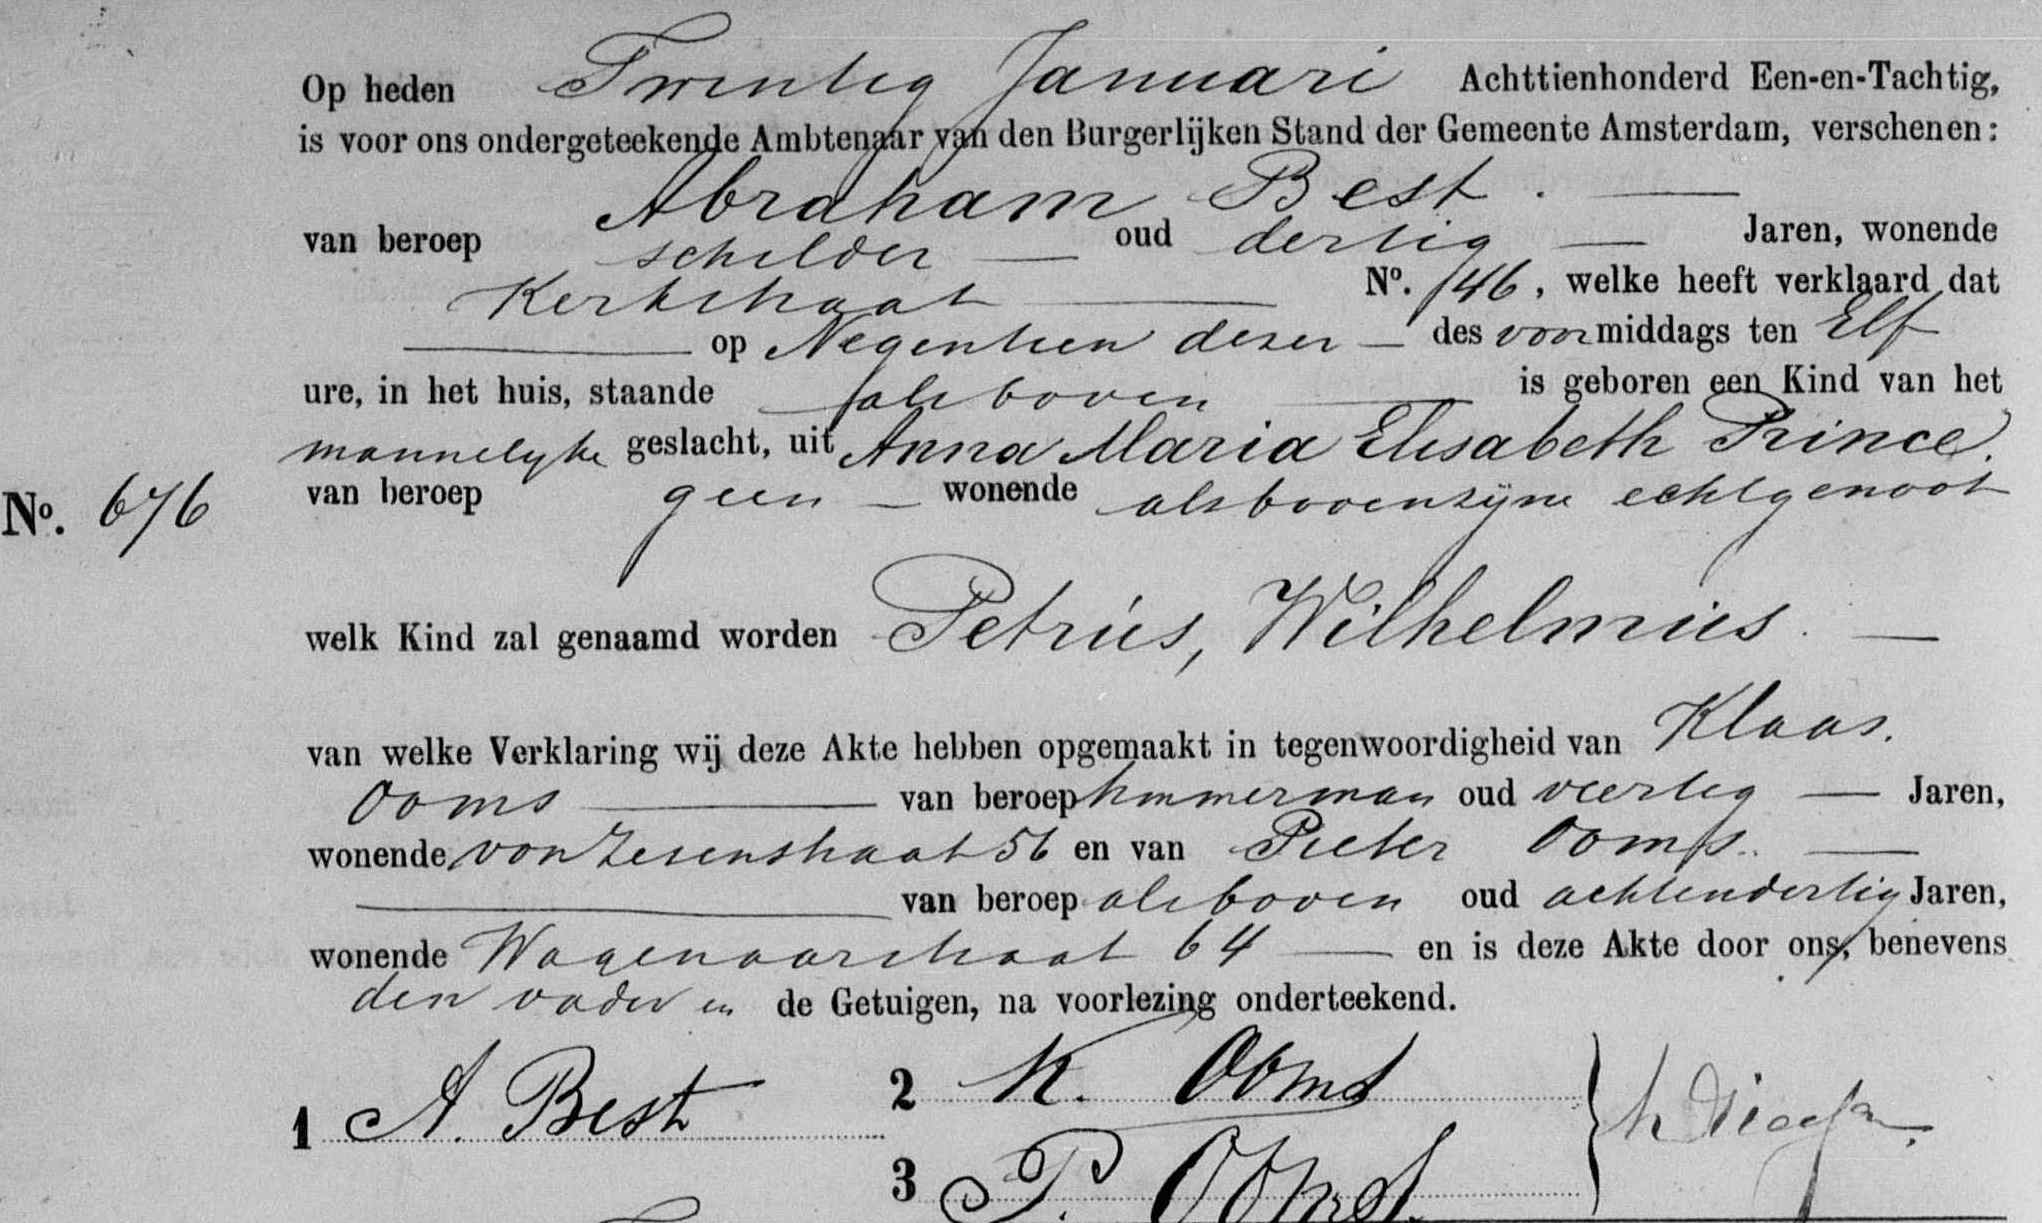 Op heden Twintig Januari Achttienhonderd Een-en-Tachtig,
is voor ons ondergeteekende Ambtenaar van den Burgerlijken Stand der Gemeente Amsterdam, verschenen:
Abraham Best. —
van beroep schilder — oud dertig — Jaren, wonende
Kerkstraat — No. 146, welke heeft verklaard dat
— op Negentien dezer — des voormiddags ten Elf
ure, in het huis, staande alsboven — is geboren een Kind van het
mannelyke geslacht, uit Anna Maria Elisabeth Prince.
No. 676 van beroep geen — wonende alsboven zyne echtgenoot
welk Kind zal genaamd worden Petrus, Wilhelmus. —
van welke Verklaring wij deze Akte hebben opgemaakt in tegenwoordigheid van Klaas.
Ooms — van beroep timmerman oud veertig — Jaren,
wonende von Zesenstraat 56 en van Pieter Ooms. —
— van beroep alsboven oud achtendertig Jaren,
wonende Wagenaarstraat 64 — en is deze Akte door ons, benevens
den vader en de Getuigen, na voorlezing onderteekend.
1 A. Best 2 K. Ooms
3 P. Ooms